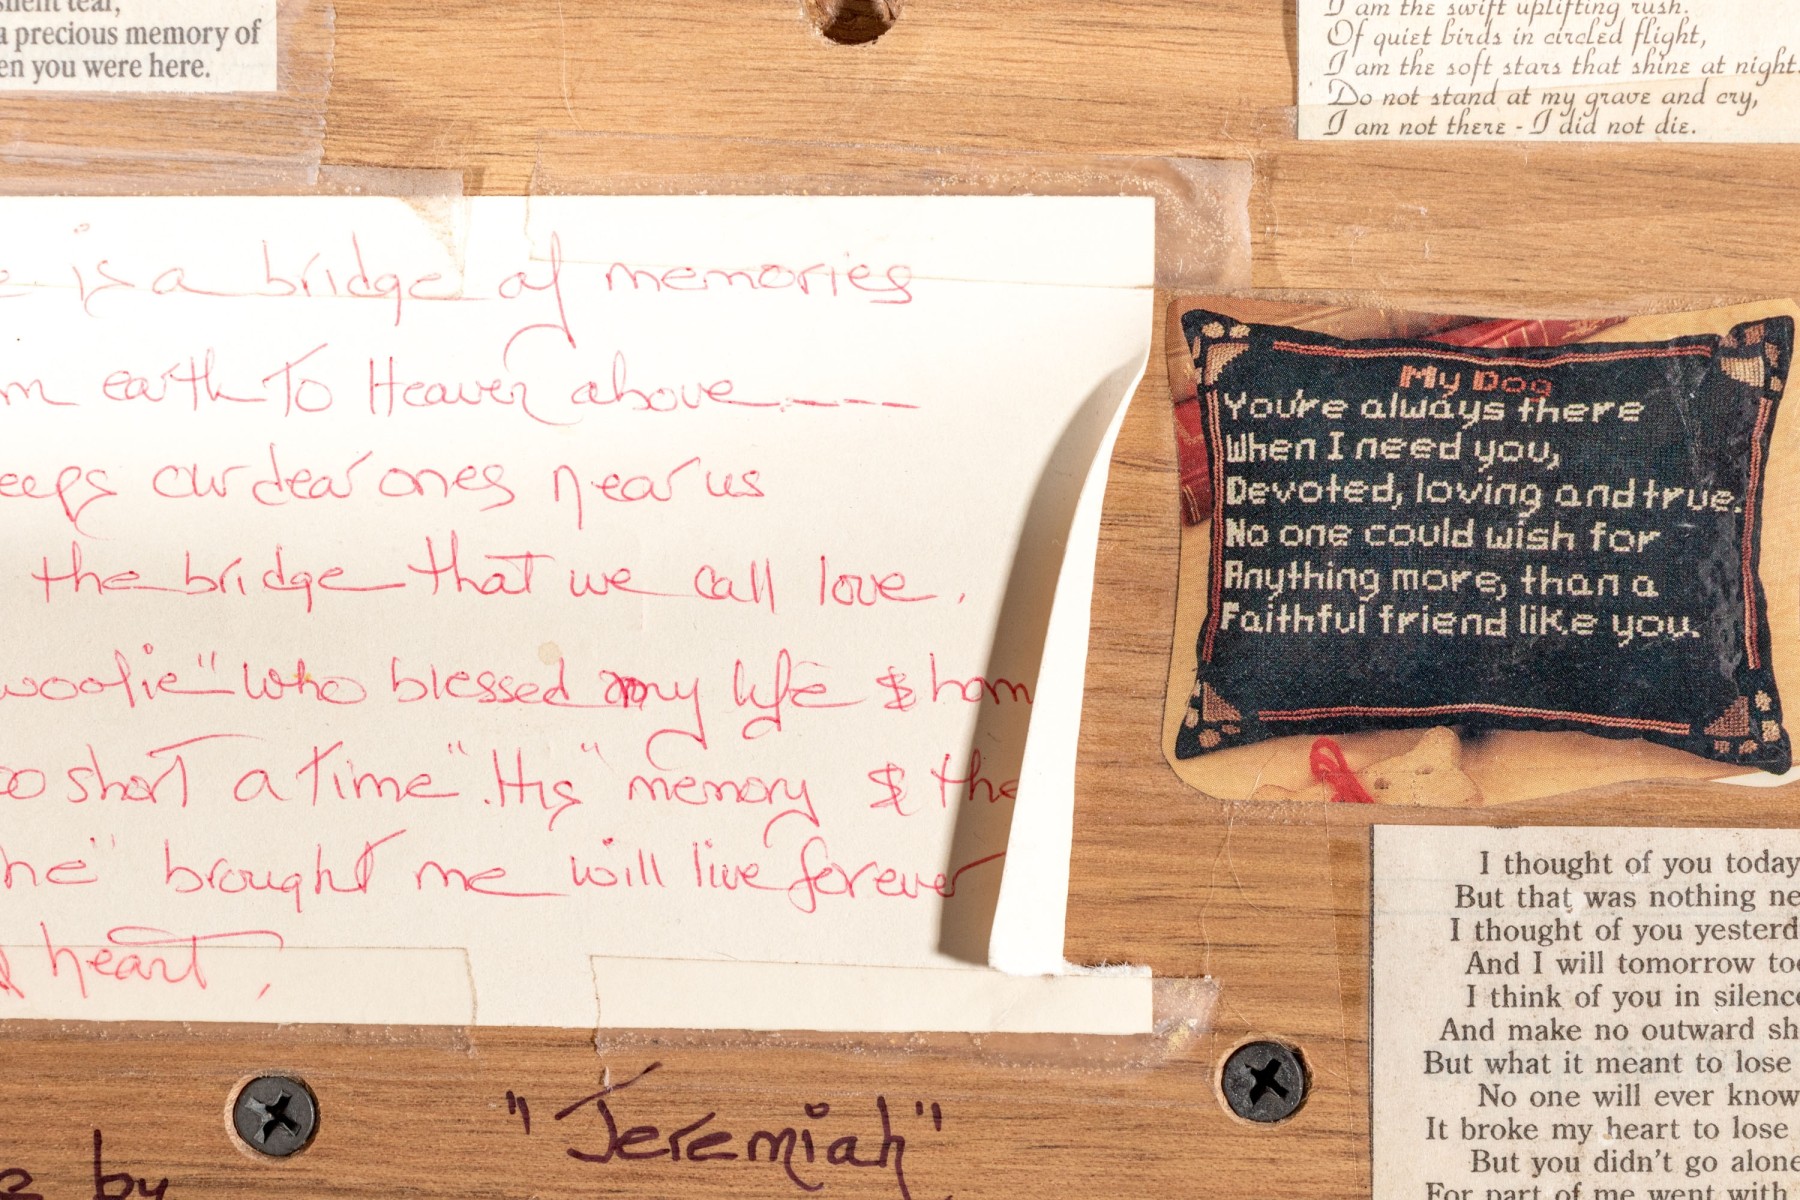 silent tear,
a precious memory of
en you were here.
I am the swift uplifting rush.
Of quiet birds in circled flight,
I am the soft stars that shine at night.
Do not stand at my grave and cry,
I am not there - I did not die.
e is a bridge of memories
m earth To Heaven above----
eeps our dear ones near us
the bridge that we call love.
woolie" who blessed my life & hom
oo short a Time". "His" memory & the
he" brought me will live forever
heart,
My Dog
You're always there
When I need you,
Devoted, loving and true.
No one could wish for
Anything more, than a
Faithful friend like you.
I thought of you today
But that was nothing ne
I thought of you yesterd
And I will tomorrow too
I think of you in silence
And make no outward sh
But what it meant to lose
No one will ever know
It broke my heart to lose
But you didn't go alone
For part of me went with
"Jeremiah"
e by